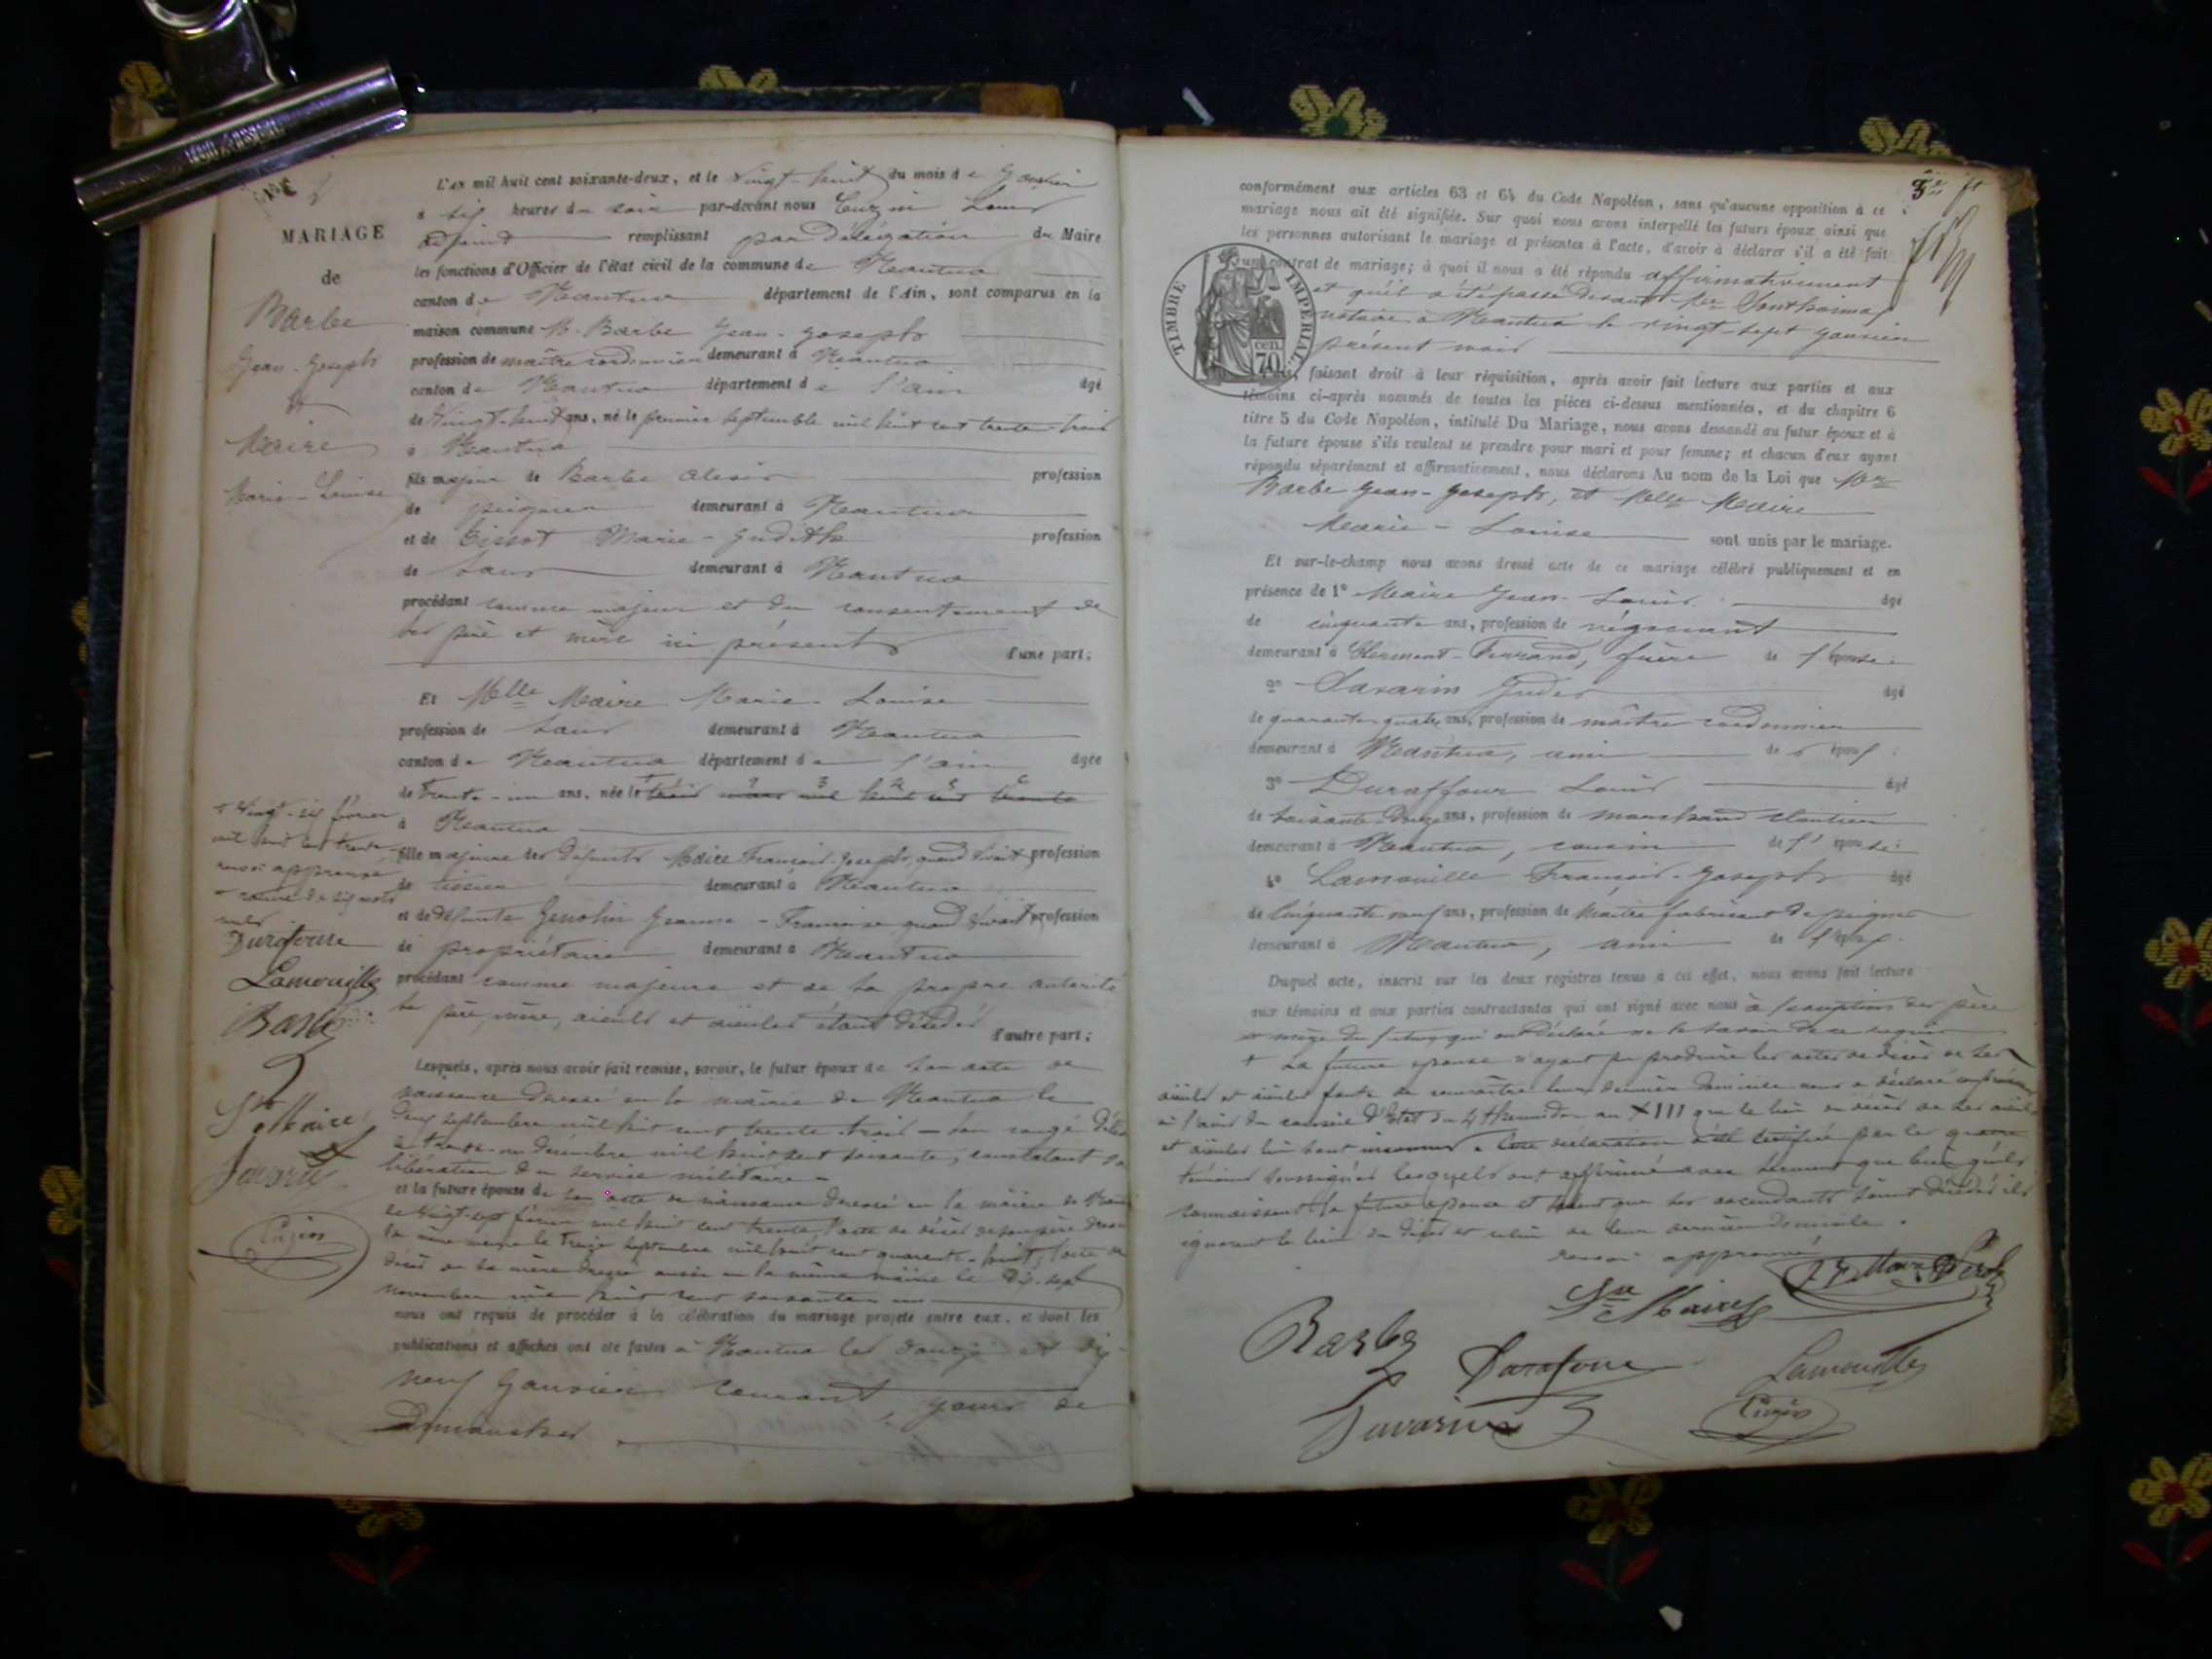 MARIAGE
de
Barbe
Jean-Joseph
et
Maire
Marie-Louise
L'an mil huit cent soixante-deux, et le vingt-huit du mois de Janvier
à six heures du soir par-devant nous Louis
adjoint remplissant par délégation du Maire
les fonctions d'Officier de l'état civil de la commune de Nantua
canton de Nantua département de l'Ain, sont comparus en la
maison commune M. Barbe Jean-Joseph
profession de maître cordonnier demeurant à Nantua
canton de Nantua département de l'ain âgé
de vingt-huit ans, né le premier septembre mil huit cent trente-trois
à Nantua
fils majeur de Barbe Alexis profession
de demeurant à Nantua
et de Tissot Marie-Judith profession
de sans demeurant à Nantua
procédant comme majeur et du consentement de
ses père et mère ici présents
d'une part;
Et Melle Maire Marie-Louise
profession de sans demeurant à Nantua
canton de Nantua département de l'ain âgée
de trente-un ans, née le trois mars mil huit cent trente
à Nantua
fille majeure des défunts Maire François-Joseph, quand vivait profession
de demeurant à Nantua
et de défunte Jeanne-Françoise quand vivait profession
de propriétaire demeurant à Nantua
procédant comme majeure et de sa propre autorité
ses père, mère, aïeuls et aïeules étant décédés
d'autre part;
+ Vingt-six février
mil huit cent trente,
renvoi approuvé
six mots
nuls
Duraffour
Lamouille
Barbe
Maire
Savarin
Lesquels, après nous avoir fait remise, savoir, le futur époux de son acte de
naissance dressé en la mairie de Nantua le
deux septembre mil huit cent trente-trois - son congé
le trente-un décembre mil huit cent soixante, constatant sa
libération du service militaire -
et la future épouse de son acte de naissance dressé en la mairie de
le vingt-sept février mil huit cent trente, l'acte de décès de son père dressé
la même mairie le treize septembre mil huit cent quarante-huit, l'acte de
décès de sa mère dressé aussi en la même mairie le dix-sept
novembre mil huit cent soixante-un
nous ont requis de procéder à la célébration du mariage projeté entre eux, et dont les
publications et affiches ont été faites à Nantua les douze et dix-
neuf Janvier courant, jours de
Dimanches
conformément aux articles 63 et 64 du Code Napoléon, sans qu'aucune opposition à ce
mariage nous ait été signifiée. Sur quoi nous avons interpellé les futurs époux ainsi que
les personnes autorisant le mariage et présentes à l'acte, d'avoir à déclarer s'il a été fait
un contrat de mariage; à quoi il nous a été répondu affirmativement
et qu'il a été passé devant Me
notaire à Nantua le vingt-sept Janvier
présent mois
TIMBRE IMPÉRIAL
cen. 70
faisant droit à leur réquisition, après avoir fait lecture aux parties et aux
témoins ci-après nommés de toutes les pièces ci-dessus mentionnées, et du chapitre 6
titre 5 du Code Napoléon, intitulé Du Mariage, nous avons demandé au futur époux et à
la future épouse s'ils veulent se prendre pour mari et pour femme; et chacun d'eux ayant
répondu séparément et affirmativement, nous déclarons Au nom de la Loi que Mr
Barbe Jean-Joseph, et Melle Maire
Marie-Louise sont unis par le mariage.
Et sur-le-champ nous avons dressé acte de ce mariage célébré publiquement et en
présence de 1° Maire Jean-Louis âgé
de cinquante ans, profession de négociant
demeurant à Clermont-Ferrand, frère de l'épouse
2° Savarin Judes âgé
de quarante-quatre ans, profession de maître cordonnier
demeurant à Nantua, ami de époux;
3° Duraffour Louis âgé
de soixante-douze ans, profession de marchand
demeurant à Nantua, cousin de l'épouse;
4° Lamouille François-Joseph âgé
de cinquante-neuf ans, profession de maître fabricant de peignes
demeurant à Nantua, ami de l'époux.
Duquel acte, inscrit sur les deux registres tenus à cet effet, nous avons fait lecture
aux témoins et aux parties contractantes qui ont signé avec nous à l'exception des père
et mère du futur qui ont déclaré ne le savoir de ce requis
+ La future épouse n'ayant pu produire les actes de décès de ses
aïeuls et aïeules faute de connaître leur dernier domicile nous a déclaré conformément
à l'avis du conseil d'Etat du 4 thermidor an XIII que le lieu du décès de ses aïeuls
et aïeules lui sont inconnus. Cette déclaration a été certifiée par les quatre
témoins soussignés lesquels ont affirmé avec serment que bien qu'ils
connaissent la future épouse et que ses ascendants soient décédés ils
ignorent le lieu du décès et celui de leur dernier domicile.
renvoi approuvé
Maire
Barbe
Duraffour
Lamouille
Savarin